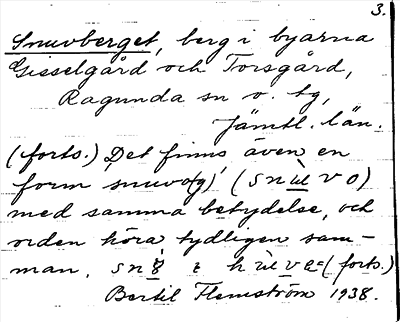 3.
Snuvberget, berg i byarna
Gisselgård och Torsgård,
Ragunda sn o. tg,
Jämtl. län.
(forts.) Det finns även en
form snuvo(g) (snu̲vo)
med samma betydelse, och
orden höra tydligen sam-
man. (forts.)
Bertil Flemström 1938.